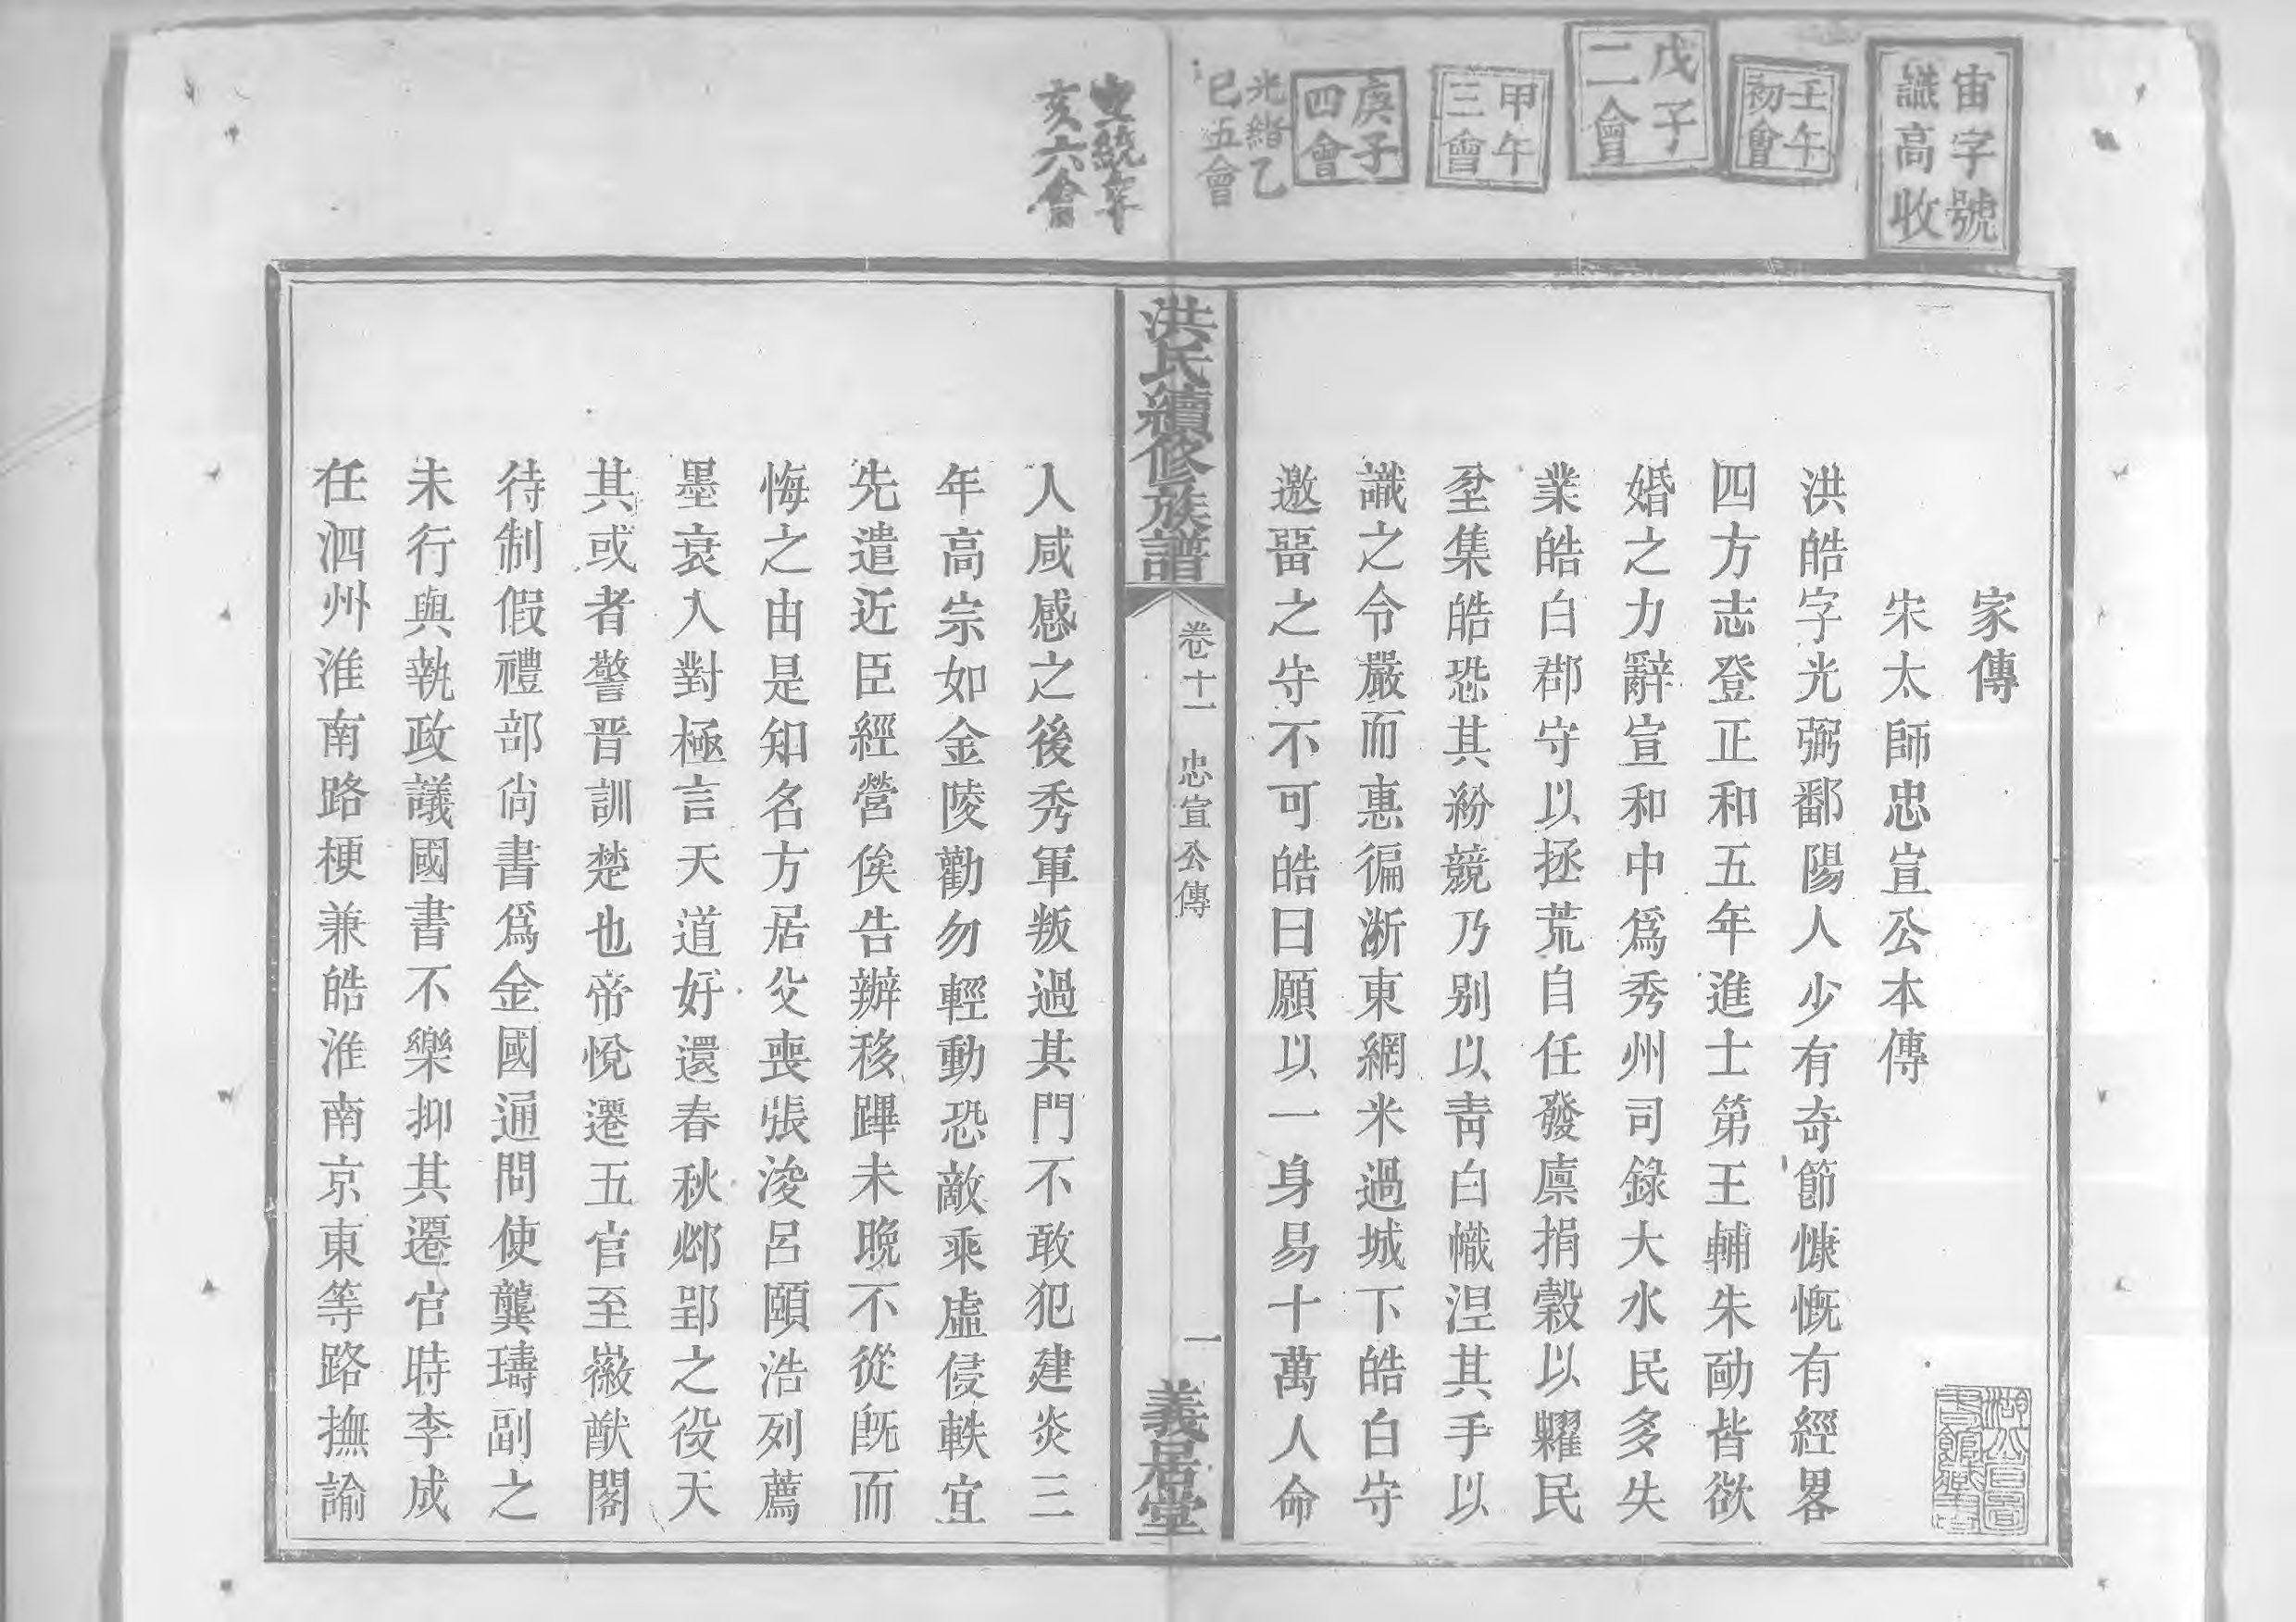 宙字號
譏高收
壬午
初會
戊子
二會
甲午
三會
庚子
四會
光緒乙
巳五會
宣統辛
亥六會
家傳
宋太師忠宣公本傳
洪皓字光弼鄱陽人少有奇節慷慨有經畧
四方志登正和五年進士第王輔朱勔皆欲
婚之力辭宣和中爲秀州司錄大水民多失
業皓白郡守以拯荒自任發廪捐榖以糶民
坌集皓恐其紛競乃别以青白幟涅其手以
識之令嚴而惠徧浙東網米過城下皓白守
邀畱之守不可皓曰願以一身易十萬人命
洪氏續修族譜
卷十一
忠宣公傳
一
義居堂
人咸感之後秀軍叛過其門不敢犯建炎三
年高宗如金陵勸勿輕動恐敵乘虛侵軼宜
先遣近臣經營俟告辦移蹕未晚不從旣而
悔之由是知名方居父喪張浚呂頤浩列薦
墨衰入對極言天道好還春秋邲郢之役天
其或者警晋訓楚也帝悅遷五官至徽猷閣
待制假禮部尙書爲金國通問使龔璹副之
未行與執政議國書不樂抑其遷官時李成
任泗州淮南路梗兼皓淮南京東等路撫諭